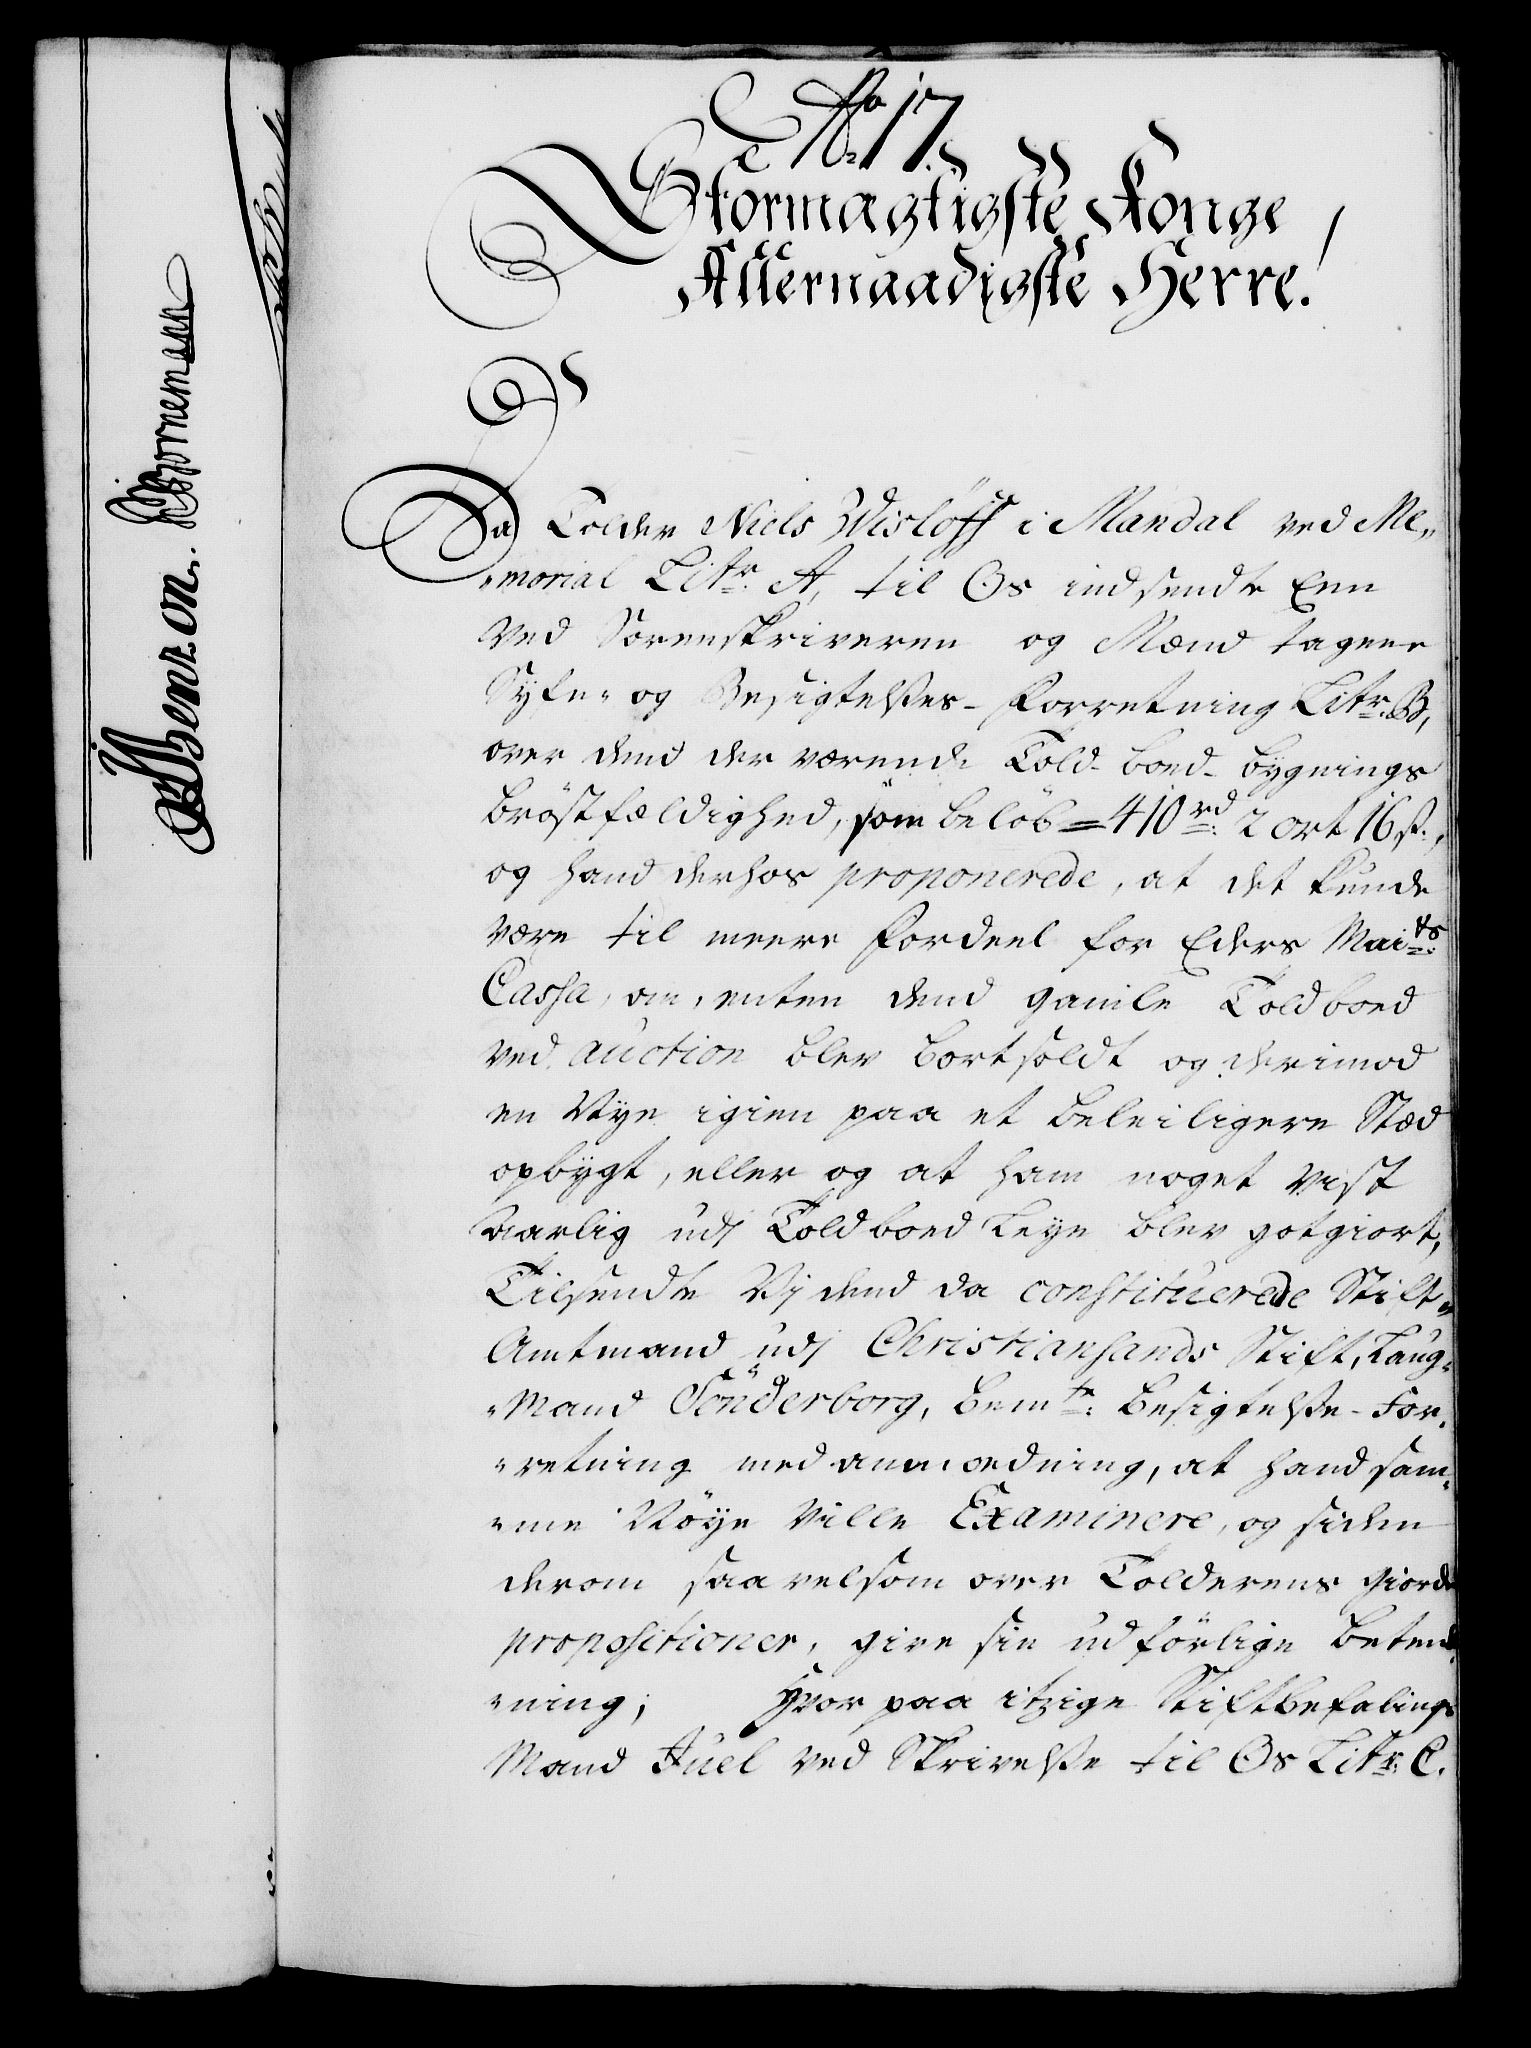 No 17
Stormagtigste Konge
Allernaadigste Herre!
Da Tolder Niels Wislöff i Mandal ved Me„
„morial Litr. A, til Os indsendte Een
ved Sorenskriveren og Mænd tagene
Syfn- og Besigtelses-Forretning Litr. B,
over dend der værende Told-boed-bygnings
Bröstfældighed, som beløb = 410 rd: 2 ort 16 s.,
og hand derhos proponerede, at det kunde
være til meere Fordeel for Eders Maits:
Cassa, om, enten dend gamle Toldboed
ved auction blev bortsoldt og derimod
en Nye igien paa et beleiligere Stæd
opbygt, eller og at ham noget vist
Aarlig udj Toldboed Leye blev gotgiort,
Tilsendte Vj dend da constituerede Stift„
Amtmand udj Christiansands Stift, Laug„
„Mand Sönderborg, bemte: Besigtelse-For„
„retning med anmodning, at hand sam„
„me Nöye Ville Examinere, og siden
derom saavelsom over Tolderens giorde
propositioner, give sin udförlige Betænk„
„ning; Hvor paa itzige Stiftbefalings
Mand Juel ved Skrivelse til Os Litr: C.
Benzon. Bornemann